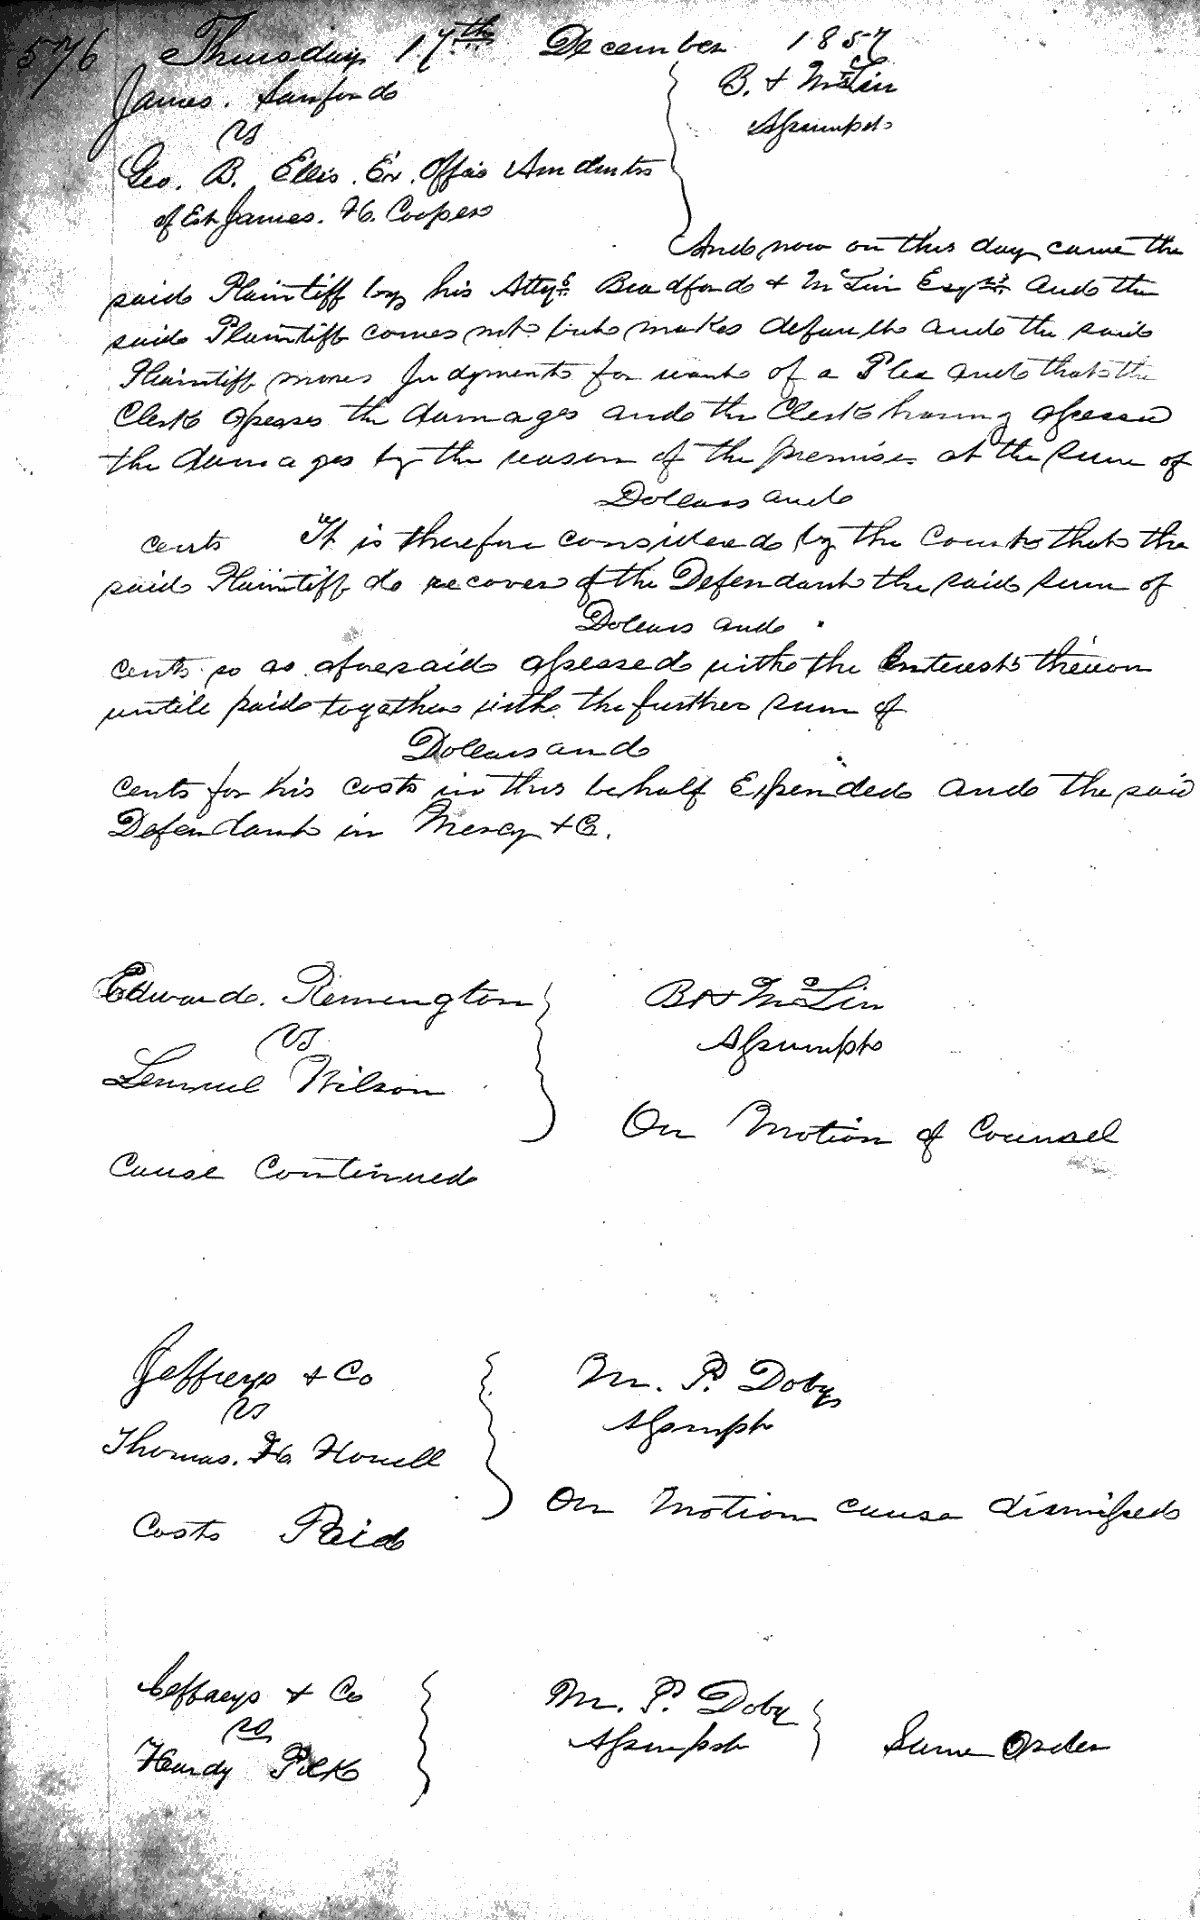 576 Thursday 17th December 1857
James. Sanford
vs
Geo. B. Ellis. Ex. Offio Amdentro
of Est James. H. Cooper
B. & McLin
Assumpst
And now on this day came the
said Plaintiff by his Attys Bradford & McLin Esqrs and the
said Plaintiff comes not but makes default and the said
Plaintiff moves Judgment for want of a Plea and that the
Clerk assess the damages and the Clerk having assessed
the damages by the reason of the premises at the sum of
Dollars and
cents It is therefore considered by the Court that the
said Plaintiff do recover of the Defendant the said sum of
Dollars and
cents so as aforesaid assessed with the Interest thereon
untill paid together with the further sum of
Dollars and
Cents for his costs in this behalf Expended and the said
Defendant in Mercy &C.
Edward. Remington
vs
Lemuel Wilson
B & McLin
Assumpst
On Motion of Counsel
Cause Continued
Jeffreys & Co
vs
Thomas. H. Howell
M. P. Doby
Assumpst
On Motion cause dismissed
Costs Paid
Jeffreys & Co
vs
Hardy Polk
M. P. Doby
Assumpst
Same Order